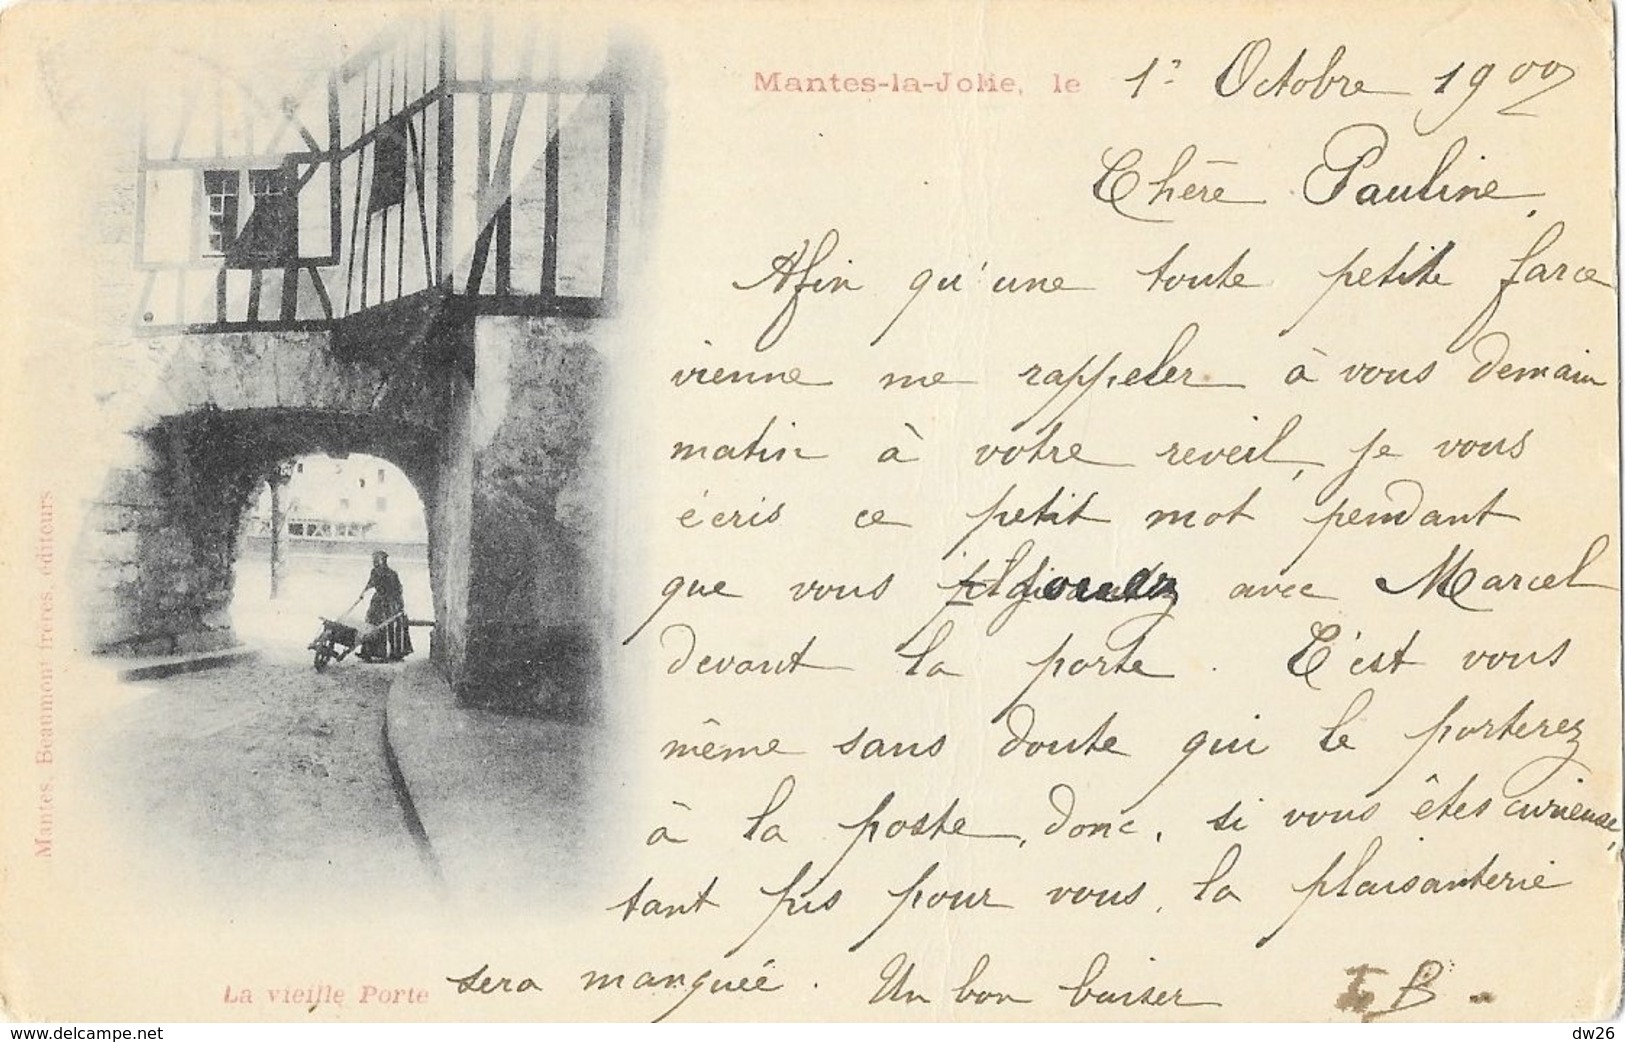 Mantes-la-Jolie, le 1er Octobre 1900
Chère Pauline,
Afin qu'une toute petite farce
vienne me rappeler à vous demain
matin à votre reveil, je vous
écris ce petit mot pendant
que vous jouez avec Marcel
devant la porte. C'est vous
même sans doute qui le porterez
à la poste, donc, si vous êtes curieuse,
tant pis pour vous, la plaisanterie
sera manquée. Un bon baiser B.
La vieille Porte
Mantes, Beaumont frères, éditeurs
dw26